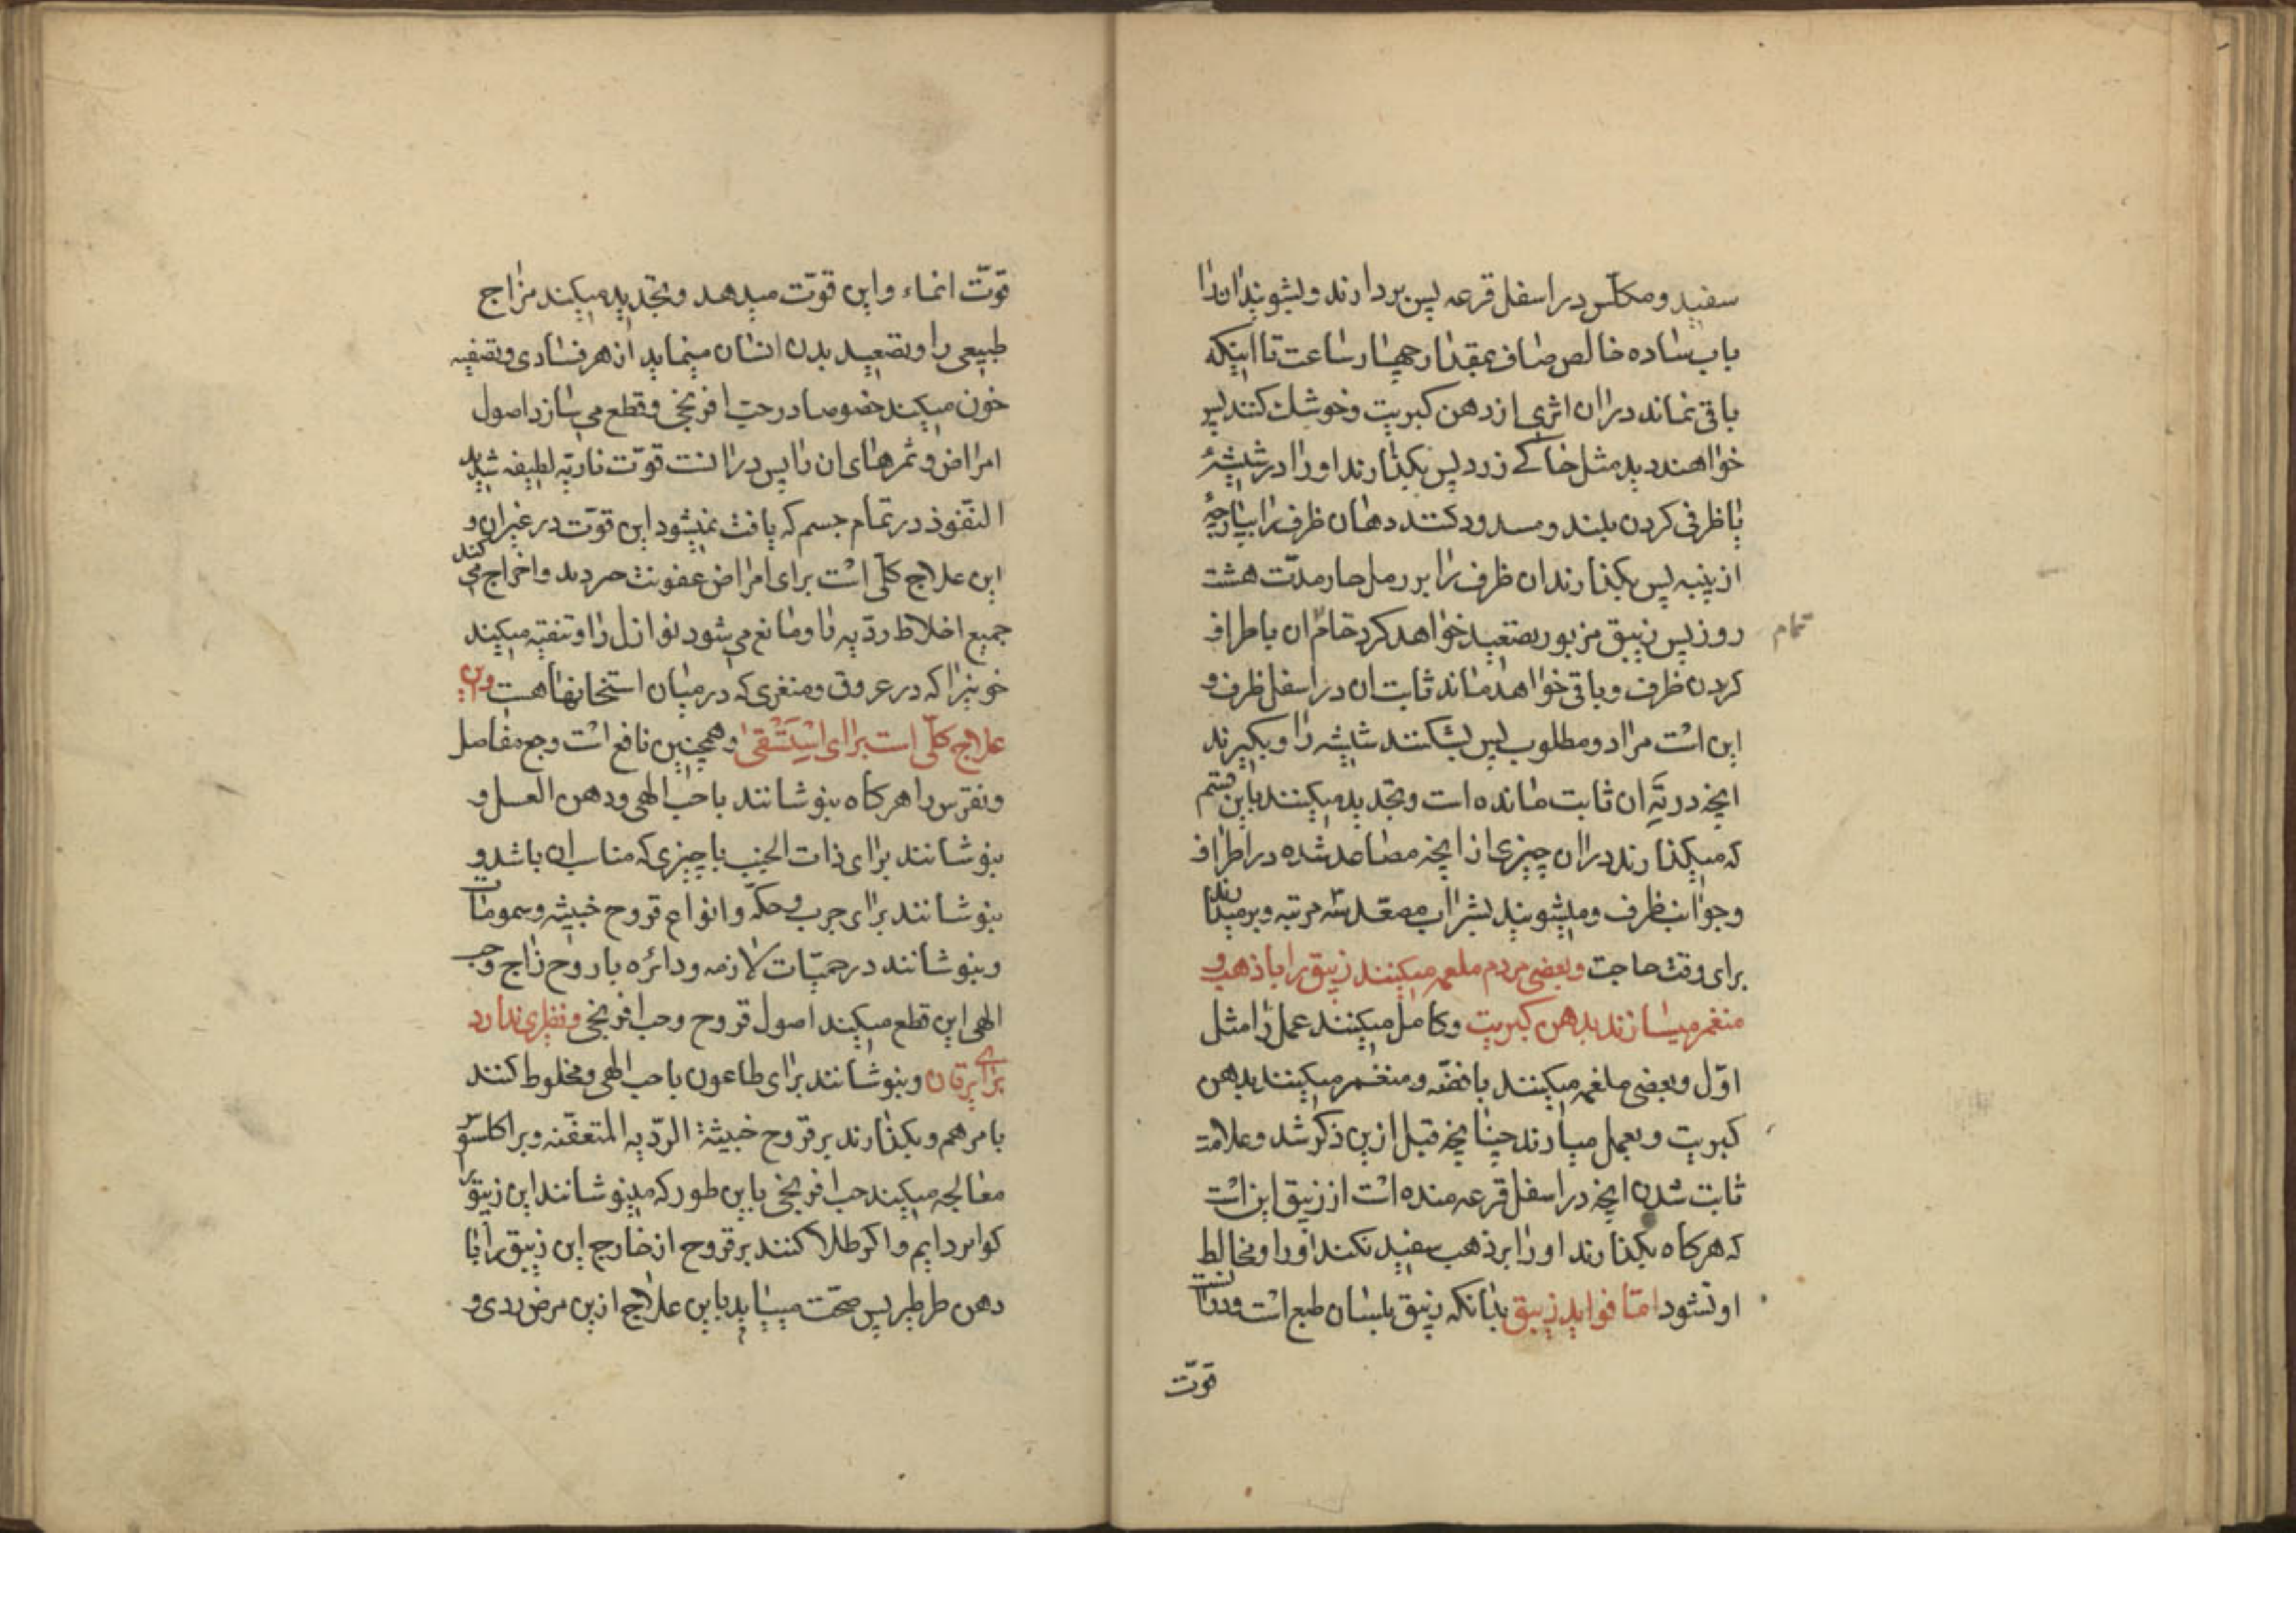 سفید و مکلّس در اسفل قرعه پس بردارند و بشویند ان را
باب ساده خالص صاف بمقدار چهار ساعت تا اینکه
باقی نماند در ان اثری از دهن کبریت و خوشک کنند پس
خواهند دید مثل خاکے زرد پس بکذارند او را در شیشهٔ
یا ظرفی کردن بلند و مسدود کنند دهان ظرف را بپارچهٔ
از پنبه پس بکذارند ان ظرف را بر رمل حار مدّت هشت
روز پس زیبق مزبور بصعید خواهد کرد تمام ان باطراف
تمام
کردن ظرف و باقی خواهد ماند ثابت ان در اسفل ظرف و
این است مراد و مطلوب پس بشکنند شیشه را و بکیرند
ایخه در تَهِ ان ثابت مانده است و تجدید میکنند باین قسم
که میکذارند در ان چیزی از ایخه مصاعد شده در اطراف
و جوانب ظرف و میشویند بشراب مصعّد سه مرتبه و برمیدارند
برای وقت حاجت و بعضی مردم ملغمه میکنند زیبق را با ذهب و
منغمر میسازند بدهن کبریت و کامل میکنند عمل را مثل
اوّل و بعضی ملغمه میکنند با فضّه و منغمر میکنند بدهن
کبریت و بعمل میارند چنایخه قبل ازین ذکر شد و علامة
ثابت شدن ایخه در اسفل قرعه منده است از زیبق این است
که هرکاه بکذارند او را بر ذهب سفید نکند او را و مخالط
او نشود امّا فواید زیبق بدانکه زیبق بلسان طبع است و در انست
قوّت
قوّت انماء و این قوّت میدهد و تجدید میکند مزاج
طبیعی را و بصعید بدن انسان مینماید از هر فسادی و تصفیه
خون میکند خصوصا در حبّ افرنجی و قطع می سازد اصول
امراض و ثمرهای ان را پس در انست قوّت ناریّه لطیفه شدید
النّفوذ در تمام جسم که یافت نمیشود این قوّت در غیر ان و
این علاج کلّی است برای امراض عفونت مردید و اخراج می کند
جمیع اخلاط ردّیه را و مانع می شود نوازل را و تنقیه میکیند
خونیرا که در عروق و منغری که در میان استخانها هست و این
علاج کلّی است برای اِسْتِسْقیٰ و همچنین نافع است وجع مفاصل
و نقرس را هرکاه بنوشانند با حبّ الهی و دهن العسل و
بنوشانند برای ذات الجنب با چیزی که مناسب ان باشد و
بنوشانند برای جرب و حکّه و انواع قروح خبیثه و سمومات
و بنوشانند در حمیّات لازمه و دائره با روح زاج و حب
الهی این قطع میکیند اصول قروح و حب افرنجی و نظیری ندارد
برای یرقان و بنوشانند برای طاعون با حب الهی و مخلوط کنند
با مرهم و بکذارند بر قروح خبیثة الردّیه المتعفّنه و براکلسوس
معالجه میکیند حب افرنجی باین طور که مینوشانند این زیبق را
کوابردایم و اکر طلا کنند بر قروح از خارج این زیبق را با
دهن طرطیر پس صحّت میسیاید باین علاج ازین مرض ردی و